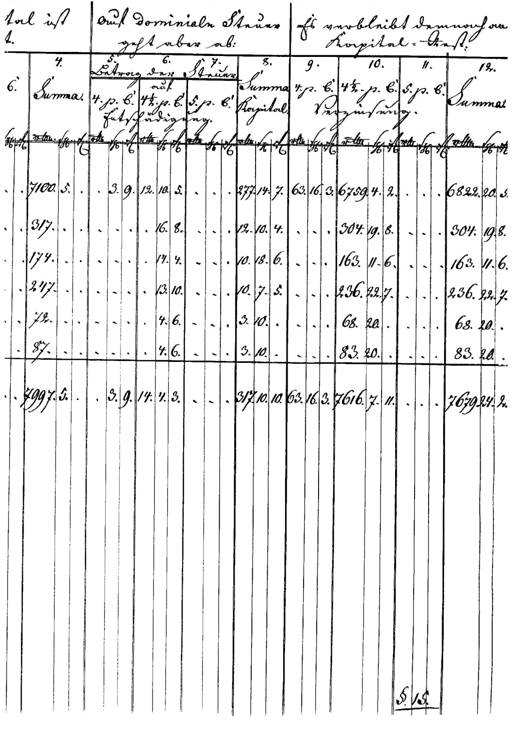 tal ist | Auf dominiale Steuer | Es verbleibt demnach an
t. | geht aber ab: | Kapital-Rest.
4. | 5. | 6. | 7. | 8. | 9. | 10. | 11. | 12.
6. | Summa. | Betrag der Steuer | Summa | 4. p. C. | 4½. p. C. | 5. p. C. | Summa
auf
4. p. C. | 4½. p. C. | 5. p. C. | Kapital. | Verzinsung.
Entschädigung.
. . 7100. 5. . . 3. 9. 12. 10. 5. . . . 277. 14. 7. 63. 16. 3. 6759. 4. 2. . . . 6822. 20. 5.
. . 317. . . . . . . 16. 8. . . . 12. 10. 4. . . . 304. 19. 8. . . . 304. 19. 8.
. . 174. . . . . . . 14. 4. . . . 10. 18. 6. . . . 163. 11. 6. . . . 163. 11. 6.
. . 247. . . . . . . 13. 10. . . . 10. 7. 5. . . . 236. 22. 7. . . . 236. 22. 7.
. . 72. . . . . . . 4. 6. . . . 3. 10. . . . . 68. 20. . . . . 68. 20. .
. . 87. . . . . . . 4. 6. . . . 3. 10. . . . . 83. 20. . . . . 83. 20. .
. . 7997. 5. . . 3. 9. 14. 4. 3. . . . 317. 10. 10. 63. 16. 3. 7616. 7. 11. . . . 7679. 24. 2.
§. 15.